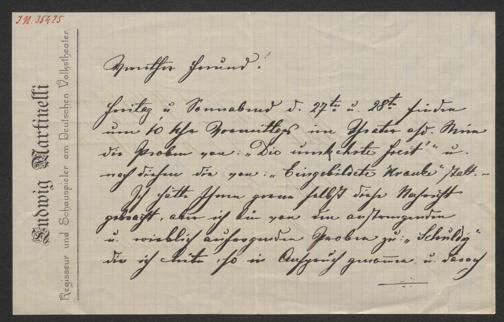 I.N. 35425
Ludwig Martinelli
Regisseur und Schauspieler am Deutschen Volkstheater.
Werther Freund!
Freitag u. Sonnabend d. 27ten u. 28ten finden
um 10 Uhr Vormittags im Theater a/d. Wien
die Proben von: „Die unruh'
nachdem die von: „Eingebildete Kranke" statt. –
Ich hätte Ihnen gerne selbst diese Nachricht
gebracht, aber ich bin von den anstrengenden
u. wirklich aufregenden Proben zu: „Schuldig"
die ich leite, so in Anspruch genommen u. darf